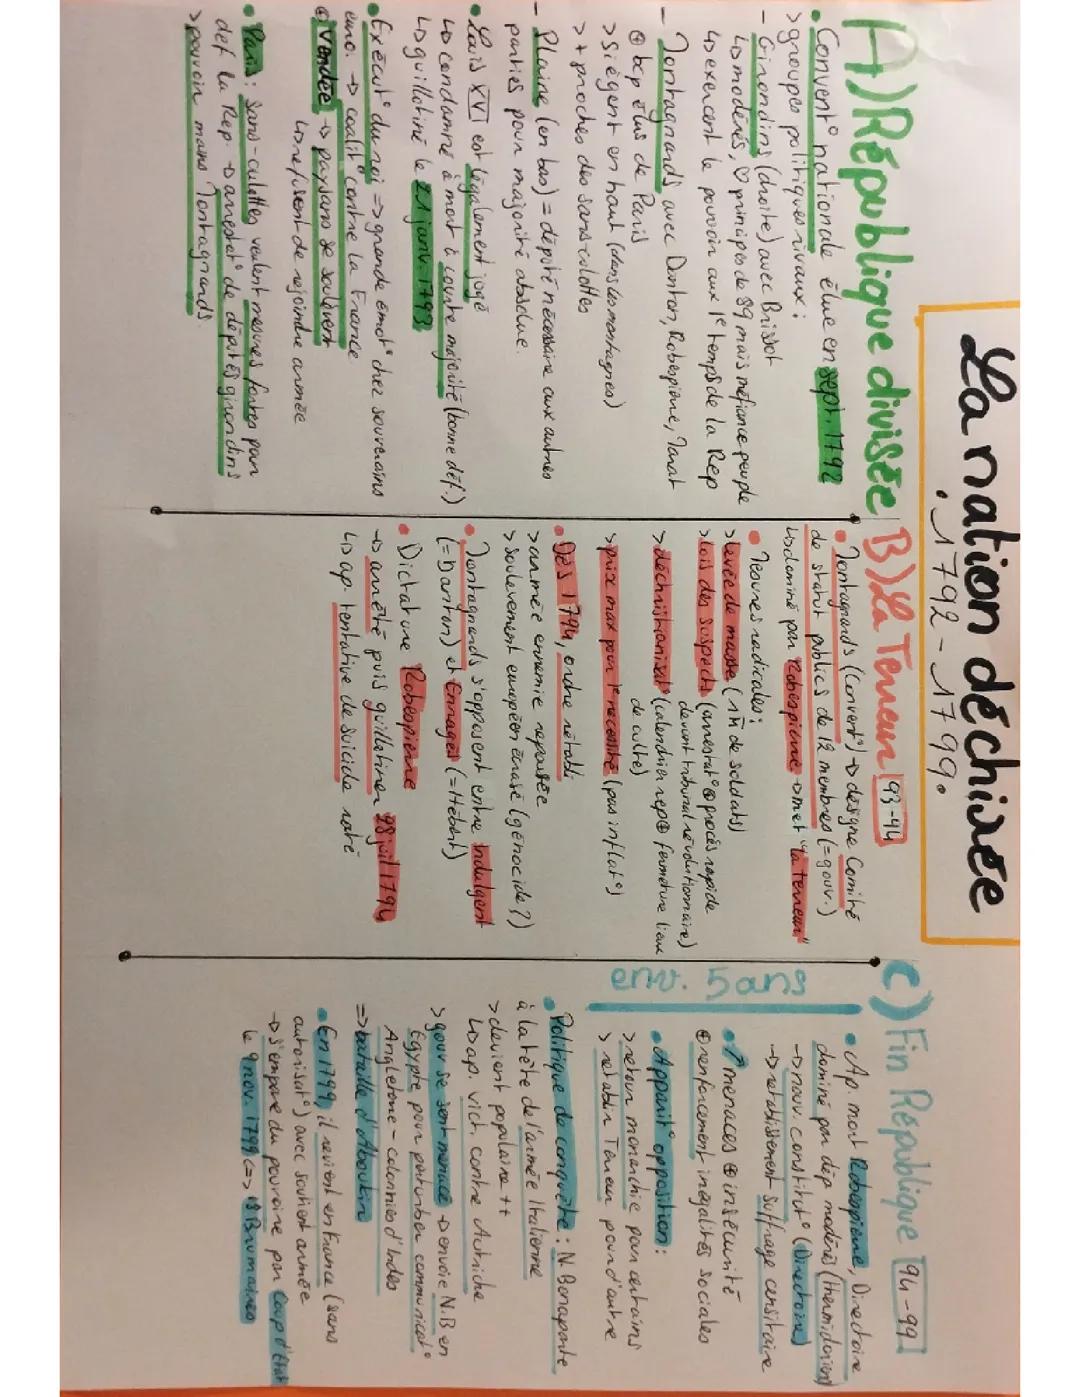 La nation déchirée
1792-1799.
A) République divisée
• Convent° nationale élue en sept. 1792
> groupes politiques rivaux :
- Girondins (droite) avec Brissot
↳ modérés, ♡ principes de 89 mais méfiance peuple
↳ exercent le pouvoir aux 1e temps de la Rep
- Montagnards avec Danton, Robespierre, Marat
⊕ bcp élus de Paris
> Siègent en haut (dans les montagnes)
> + proches des sans-culottes
- Plaine (en bas) = député nécessaire aux autres
parties pour majorité absolue.
• Louis XVI est légalement jugé
↳ condamné à mort à courte majorité (bonne déf.)
↳ guillotiné le 21 janv. 1793
• Exécut° du roi => grande émot° chez souverains
euro. → coalit° contre la France
⊕ Vendée → paysans se soulèvent
↳ refusent de rejoindre armée
• Paris : sans-culottes veulent mesures fortes par
déf la Rep. → arrestat° de députés girondins
> pouvoir mains Montagnards.
B) La Terreur 93-94
• Montagnards (Convent°) → désigne Comité
de statut publics de 12 membres (= gouv.)
↳ dominé par Robespierre → met "la terreur"
• Mesures radicales :
> levée de masse (1M de soldats)
> lois des suspects (arrestat° ⊕ procès rapide
devant tribunal révolutionnaire)
> déchristianisat° (calendrier rep ⊕ fermeture lieux
de culte)
> prix max pour 1e nécessité (pas inflat°)
• Dès 1794, ordre rétabli
> armée ennemie repoussée
> soulèvement européen écrasé (génocide ?)
• Montagnards s'opposent entre Indulgent
(= Danton) et Enragés (= Hébert)
• Dictature Robespierre
→ arrêté puis guillotiner 28 juil 1794
↳ ap. tentative de suicide raté
C) Fin République 94-99
env. 5 ans
• Ap. mort Robespierre, Directoire
dominé par dép modérés (thermidorien)
→ nouv. constitut° (Directoire)
→ rétablissement suffrage censitaire
• ↗ menaces ⊕ insécurité
⊕ renforcement inégalités sociales
• Apparit° opposition :
> retour monarchie pour certains
> rétablir Terreur pour d'autre
• Politique de conquête : N. Bonaparte
à la tête de l'armée Italienne
> devient populaire ++
↳ ap. vict. contre Autriche
> gouv se sent menacé → envoie N.B en
Egypte pour perturber communicat°
Angleterre - colonnies d'Indes
=> bataille d'Aboukir
• En 1799, il revient en France (sans
autorisat°) avec soutient armée
→ s'empare du pouvoire par Coup d'Etat
le 9 nov. 1799 <=> 18 Brumaires